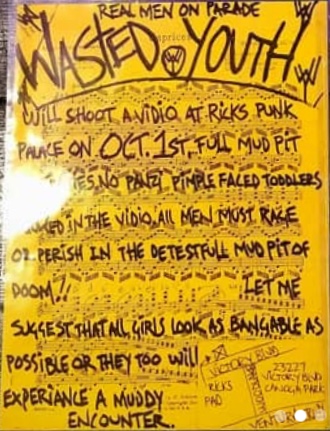 REAL MEN ON PARADE
WASTED YOUTH
WILL SHOOT A VIDIO AT RICKS PUNK
PALACE ON OCT. 1ST, FULL MUD PIT
NO PANZI PIMPLE FACED TODDLERS
IN THE VIDIO, ALL MEN MUST RAGE
OR PERISH IN THE DETESTFULL MUD PIT OF
DOOM!! LET ME
SUGGEST THAT ALL GIRLS LOOK AS BANGABLE AS
POSSIBLE OR THEY TOO WILL
EXPERIANCE A MUDDY
ENCOUNTER.
VICTORY BLVD
RICKS
PAD
23227
VICTORY BLVD
CANOGA PARK